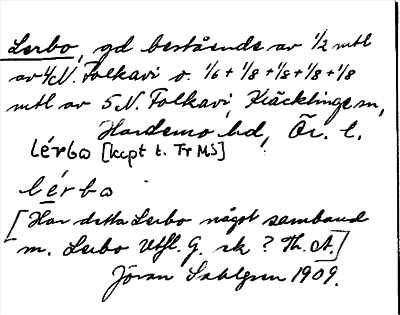 Lerbo, gd bestående av 1/2 mtl
av 4 N. Folkavi o. 1/6 + 1/8 + 1/8 + 1/8 + 1/8
mtl av 5 N. Folkavi, Kräcklinge sn,
Hardemo hd, Ör. l.
lérbo [kept t. Tr MS]
lérbo
[Har detta Lerbo något samband
m. Lerbo Utfl. G. sk ? Th. A.]
Jöran Sahlgren 1909.